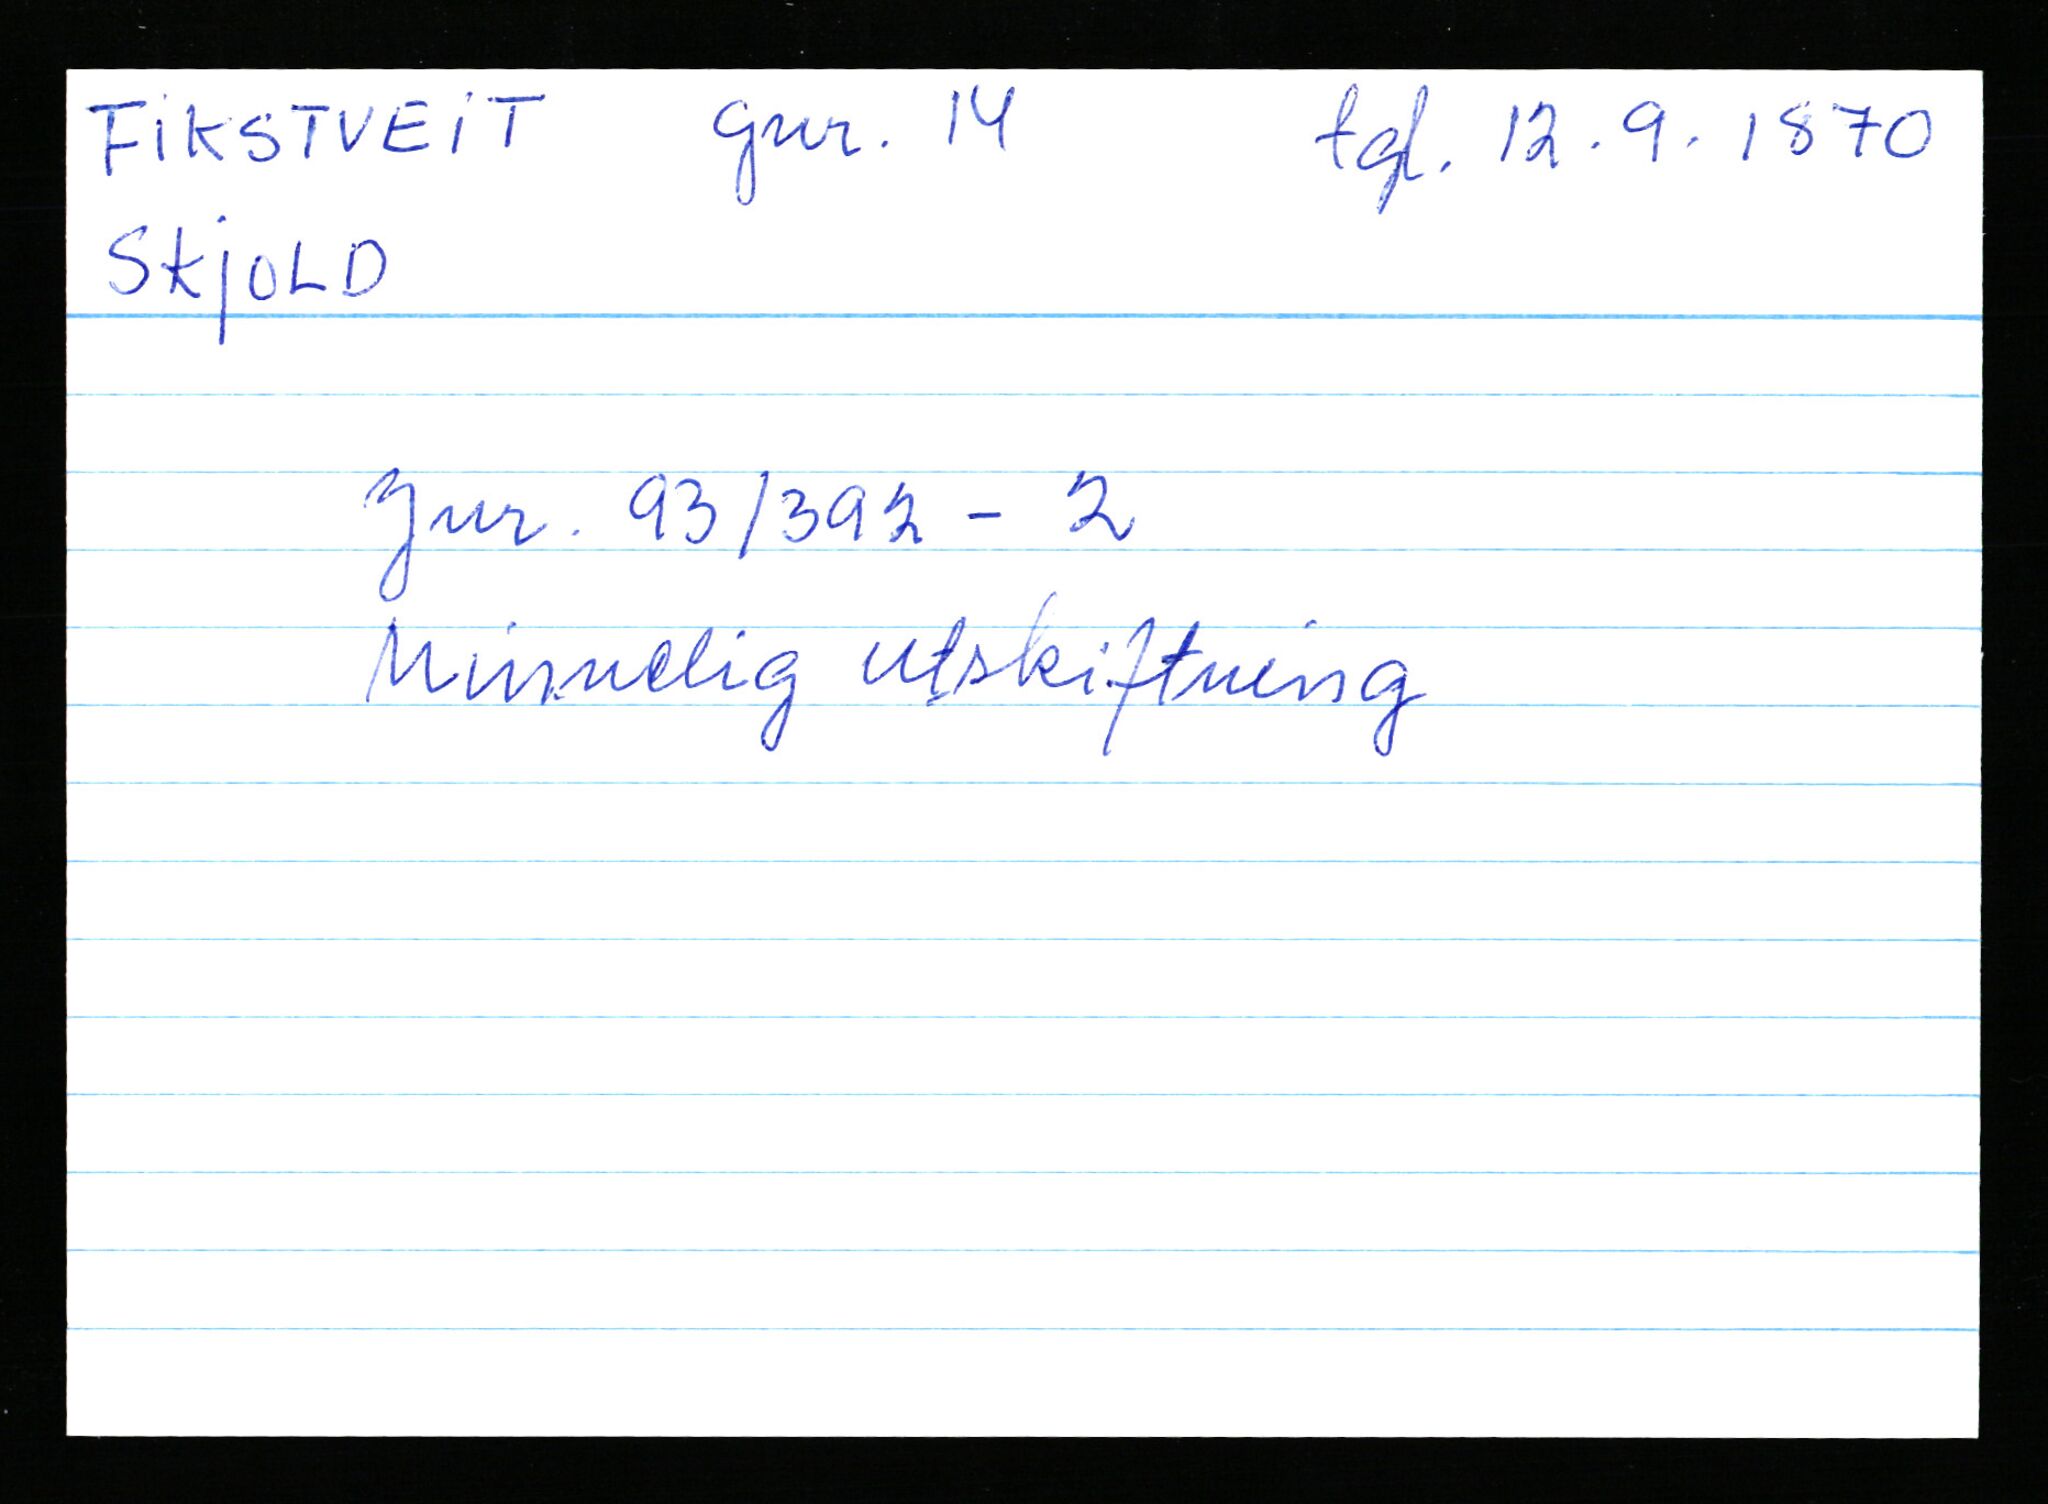 FIKSTVEIT gnr. 14 tgl. 12.9.1870
SKJOLD
Jnr. 93/392 - 2
Minnelig utskiftning